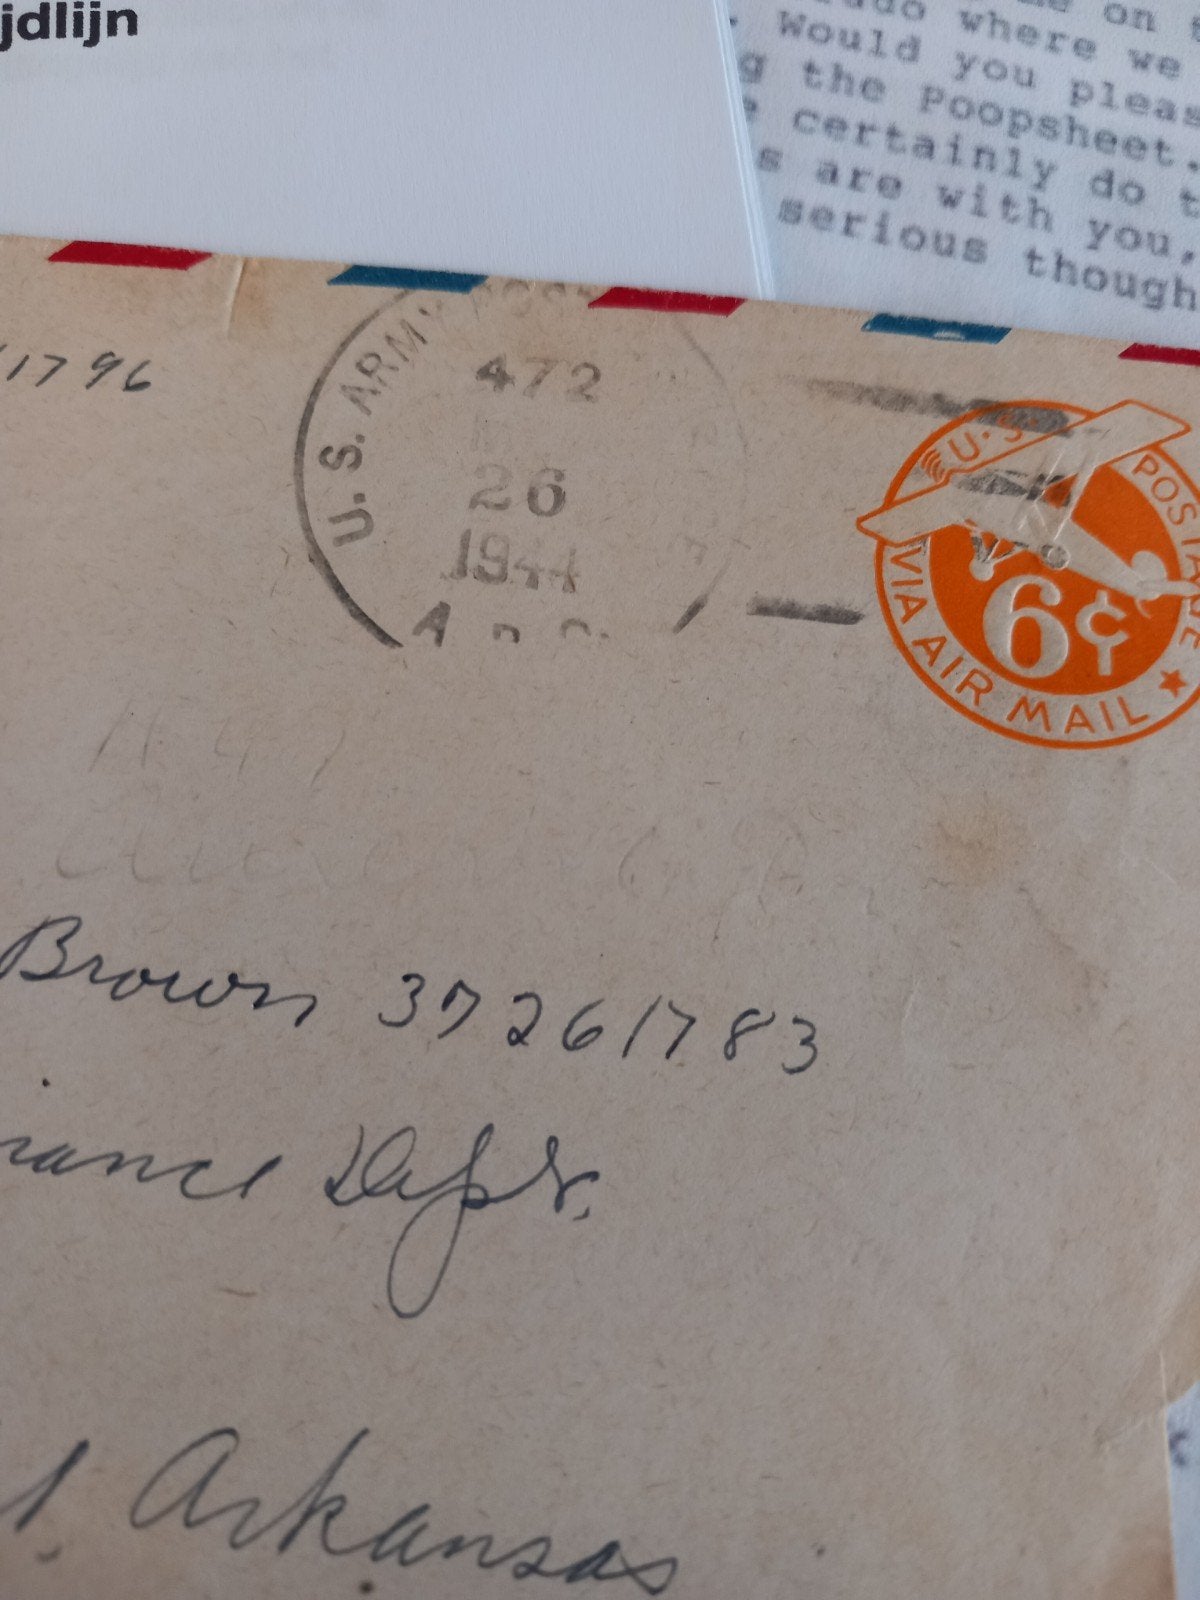 jdlijn
on
where we
Would you pleas
g the Poopsheet.
certainly do t
s are with you,
serious though
1796
U.S. ARMY
472
26
1944
U.S. POSTAGE
VIA AIR MAIL
6¢
Brown 37261783
nance Dept.
Arkansas